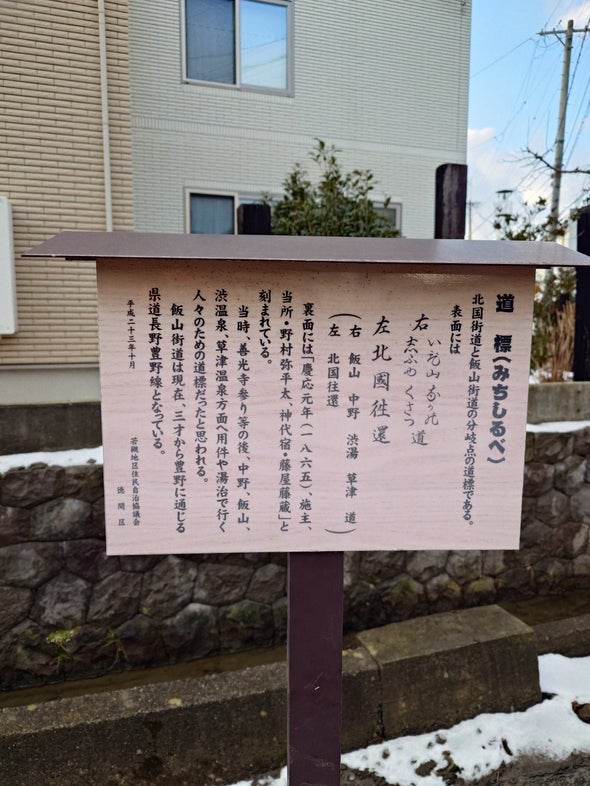 道 標(みちしるべ)
北国街道と飯山街道の分岐点の道標である。
表面には
右 いゐ山 奈可の 道
志ぶゆ くさつ
左 北國往還
(右 飯山 中野 渋湯 草津 道)
(左 北国往還)
裏面には「慶応元年(一八六五)、施主、
当所・野村弥平太、神代宿・藤屋藤蔵」と
刻まれている。
当時、善光寺参り等の後、中野、飯山、
渋温泉、草津温泉方面へ用件や湯治で行く
人々のための道標だったと思われる。
飯山街道は現在、三才から豊野に通じる
県道長野豊野線となっている。
平成二十三年十月
若槻地区住民自治協議会
徳間区